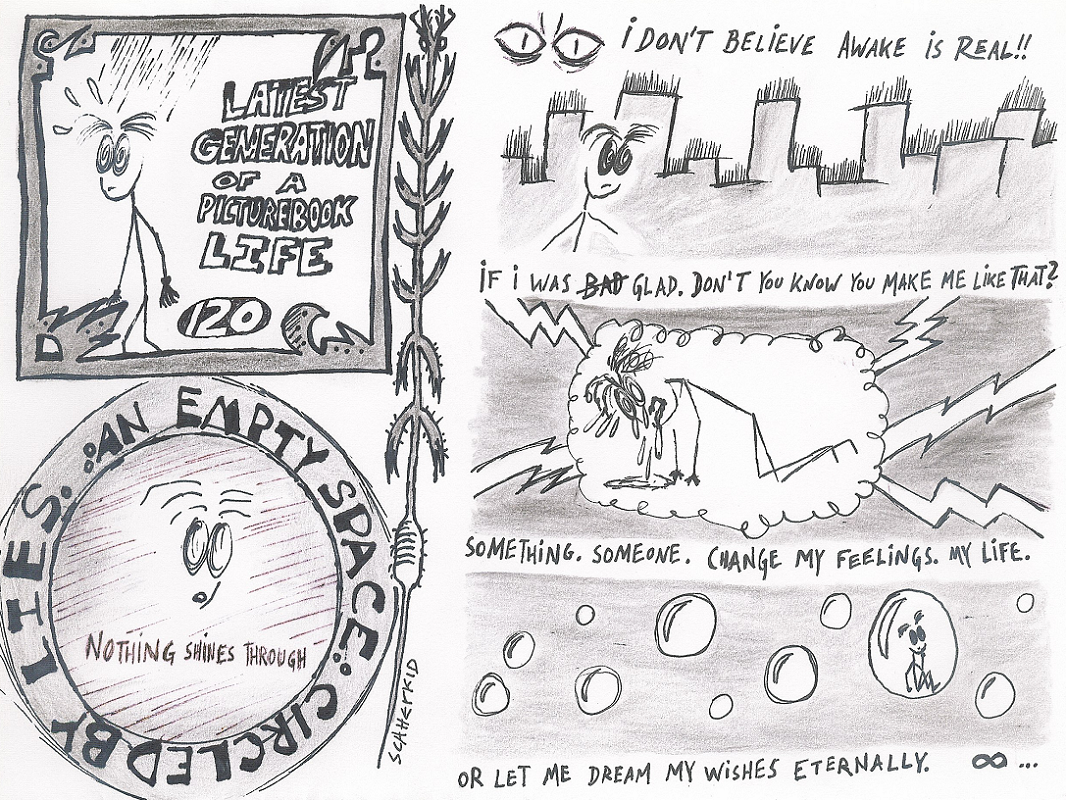 LATEST
GENERATION
OF A
PICTUREBOOK
LIFE
120
AN EMPTY SPACE: CIRCLED BY LIES.
NOTHING SHINES THROUGH
SCAHERKID
I DON'T BELIEVE AWAKE IS REAL!!
IF I WAS BAD GLAD. DON'T YOU KNOW YOU MAKE ME LIKE THAT?
SOMETHING. SOMEONE. CHANGE MY FEELINGS. MY LIFE.
OR LET ME DREAM MY WISHES ETERNALLY. ∞...